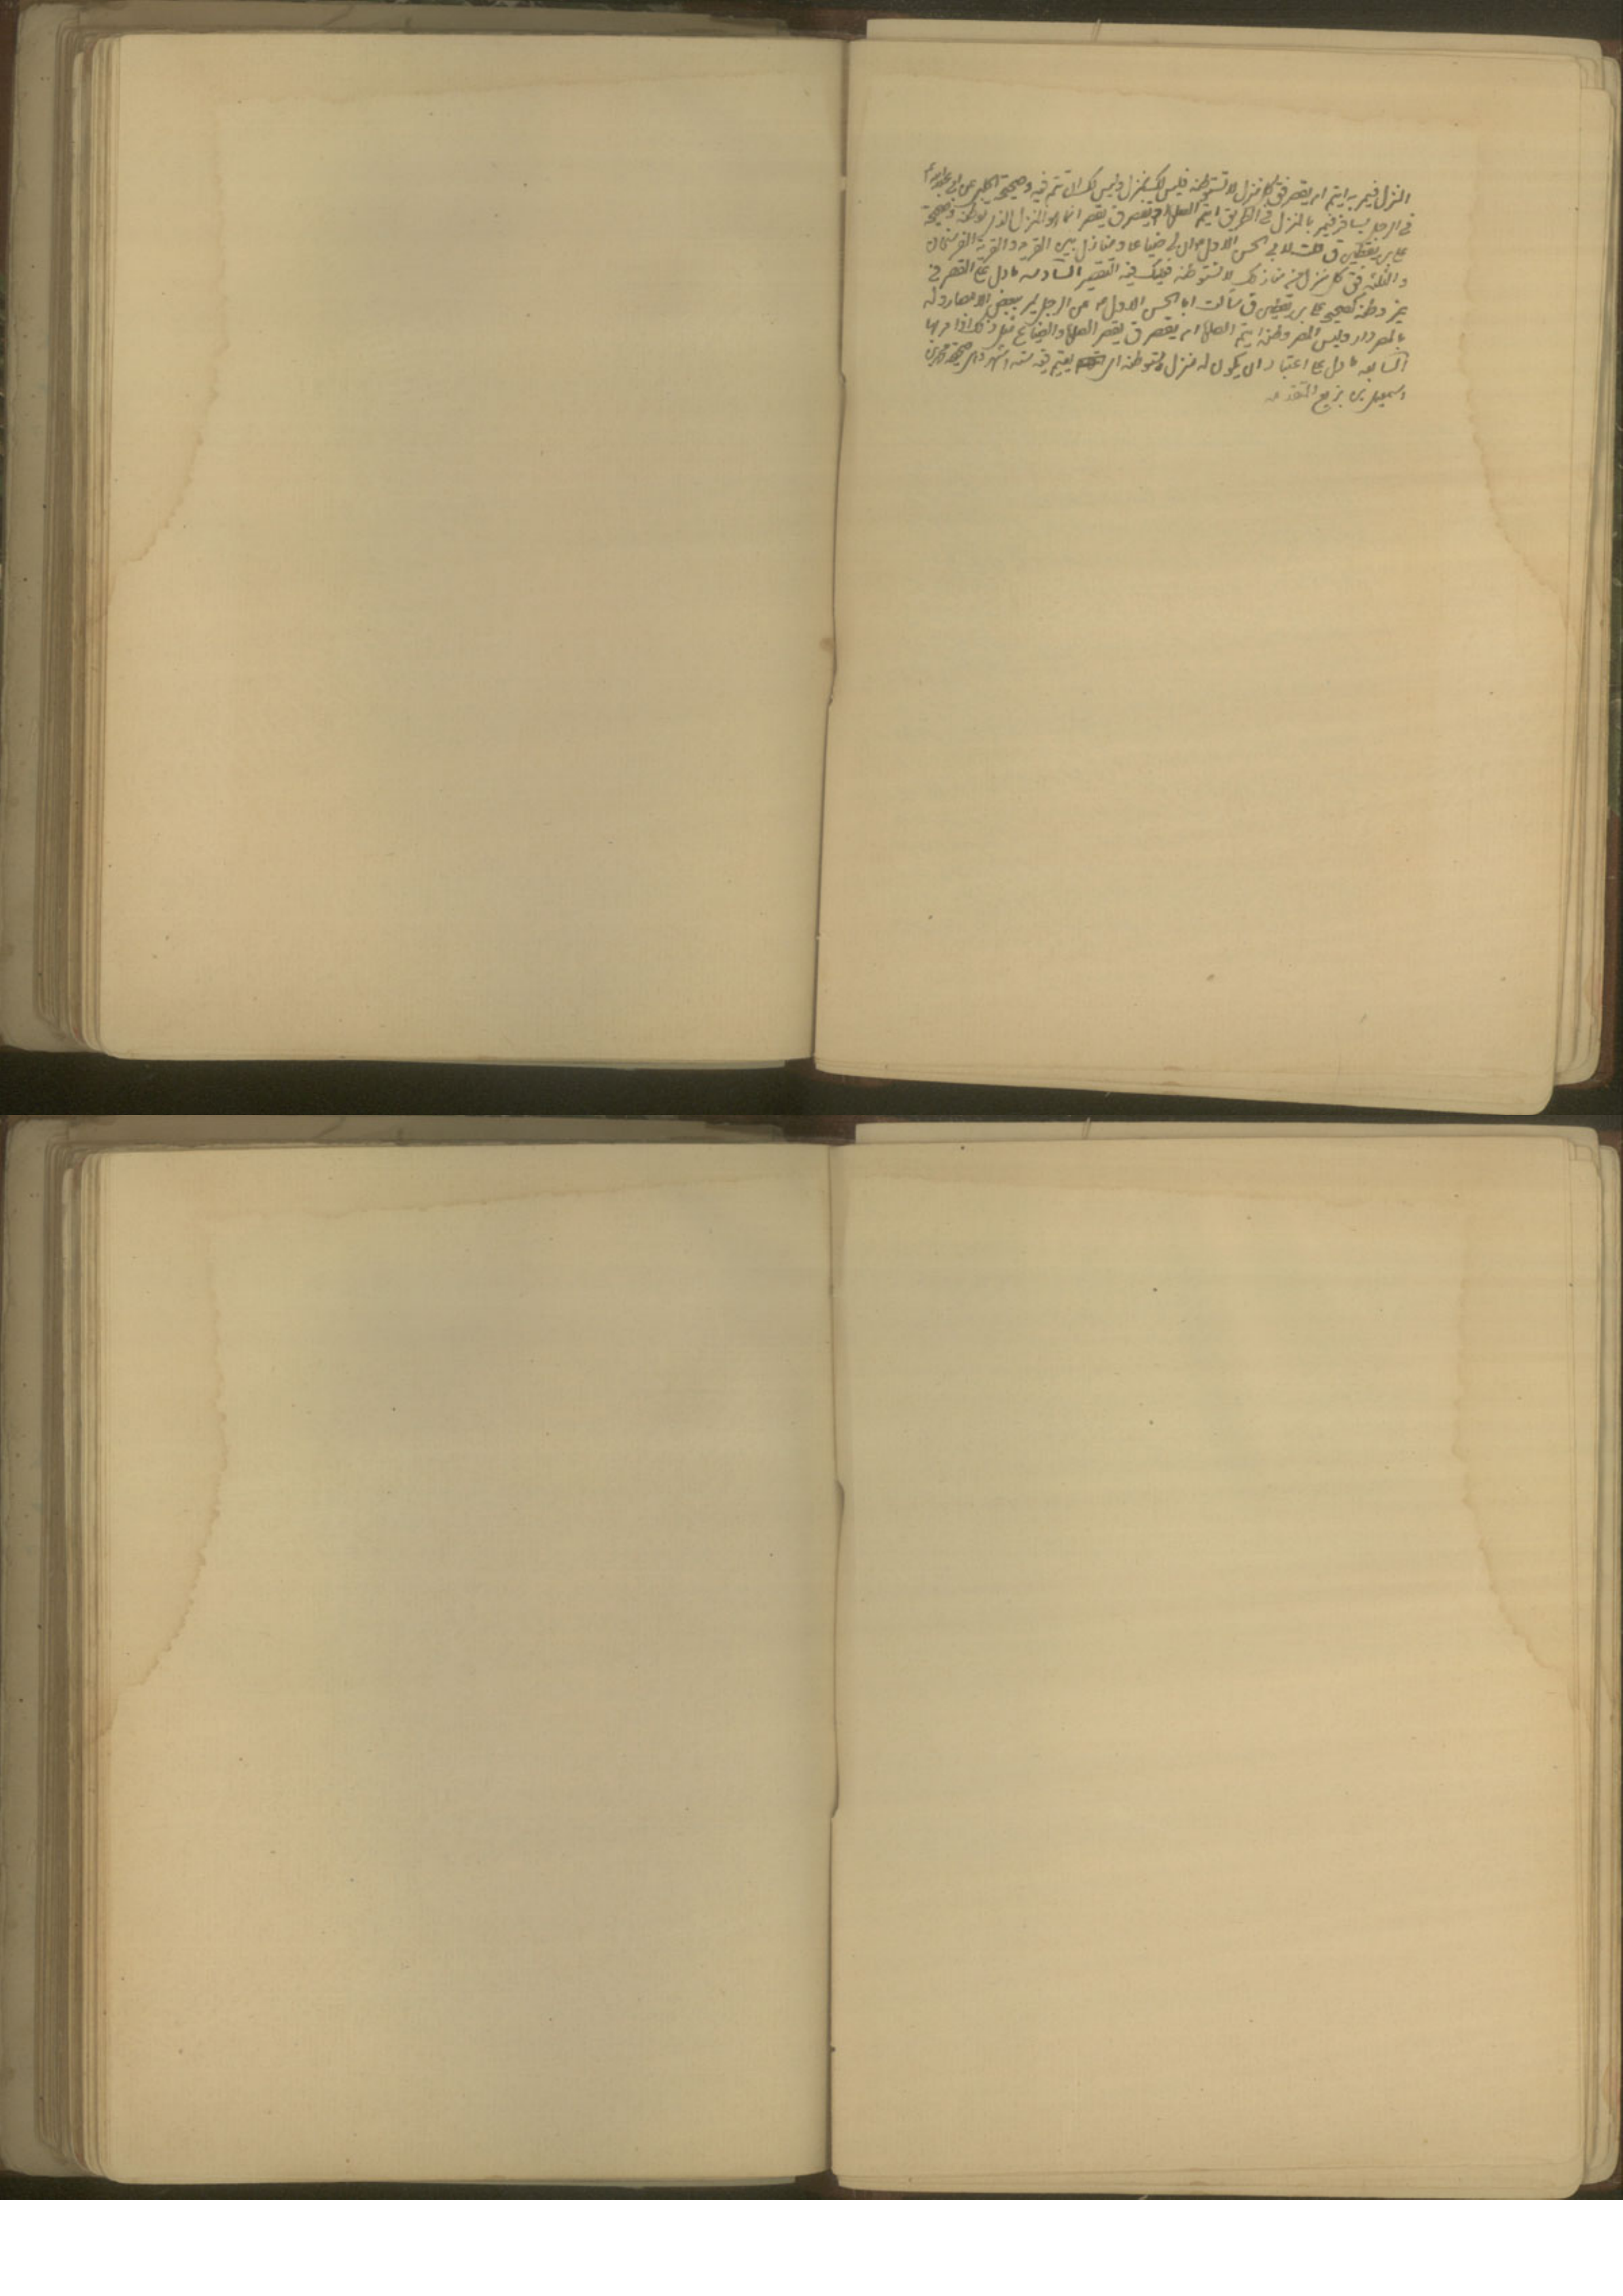 المنزل فيمر به ايتم ام يقصر ق كل منزل لا تستوطنه فليس لك بمنزل وليس لك ان تتم فيه وصحيحة الحلبي عن ابي عبد الله ع
في الرجل يسافر فيمر بالمنزل في الطريق ايتم الصلوة ام يقصر ق يقصر انما هو المنزل الذي توطنه وصحيحة
علي بن يقطين ق قلت لابي الحسن الاول ع ان لي ضياعا ومنازل بين القرية والقرية الفرسخان
والثلثة فق كل منزل من منازلك لا تستوطنه فعليك فيه التقصير السادسة ما دل على القصر في
غير وطنه كصحيح علي بن يقطين ق سألت ابا الحسن الاول ع عن الرجل يمر ببعض الامصار وله
بالمصر دار وليس المصر وطنه ايتم الصلوة ام يقصر ق يقصر الصلوة والضياع مثل ذلك اذا مر بها
السابعة ما دل على اعتبار ان يكون له منزل يستوطنه اي يقيم فيه ستة اشهر وهي صحيحة محمد بن
اسمعيل بن بزيع المتقدمة